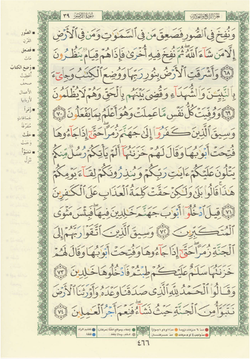 ٣٩
وَنُفِخَ فِى ٱلصُّورِ فَصَعِقَ مَن فِى ٱلسَّمَٰوَٰتِ وَمَن فِى ٱلْأَرْضِ
إِلَّا مَن شَآءَ ٱللَّهُ ثُمَّ نُفِخَ فِيهِ أُخْرَىٰ فَإِذَا هُمْ قِيَامٌ يَنظُرُونَ
٦٨ وَأَشْرَقَتِ ٱلْأَرْضُ بِنُورِ رَبِّهَا وَوُضِعَ ٱلْكِتَٰبُ وَجِا۟ىٓءَ
بِٱلنَّبِيِّـۧنَ وَٱلشُّهَدَآءِ وَقُضِىَ بَيْنَهُم بِٱلْحَقِّ وَهُمْ لَا يُظْلَمُونَ
٦٩ وَوُفِّيَتْ كُلُّ نَفْسٍ مَّا عَمِلَتْ وَهُوَ أَعْلَمُ بِمَا يَفْعَلُونَ ٧٠
وَسِيقَ ٱلَّذِينَ كَفَرُوٓا۟ إِلَىٰ جَهَنَّمَ زُمَرًا حَتَّىٰٓ إِذَا جَآءُوهَا
فُتِحَتْ أَبْوَٰبُهَا وَقَالَ لَهُمْ خَزَنَتُهَآ أَلَمْ يَأْتِكُمْ رُسُلٌ مِّنكُمْ
يَتْلُونَ عَلَيْكُمْ ءَايَٰتِ رَبِّكُمْ وَيُنذِرُونَكُمْ لِقَآءَ يَوْمِكُمْ
هَٰذَا قَالُوا۟ بَلَىٰ وَلَٰكِنْ حَقَّتْ كَلِمَةُ ٱلْعَذَابِ عَلَى ٱلْكَٰفِرِينَ
٧١ قِيلَ ٱدْخُلُوٓا۟ أَبْوَٰبَ جَهَنَّمَ خَٰلِدِينَ فِيهَا فَبِئْسَ مَثْوَى
ٱلْمُتَكَبِّرِينَ ٧٢ وَسِيقَ ٱلَّذِينَ ٱتَّقَوْا۟ رَبَّهُمْ إِلَى
ٱلْجَنَّةِ زُمَرًا حَتَّىٰٓ إِذَا جَآءُوهَا وَفُتِحَتْ أَبْوَٰبُهَا وَقَالَ لَهُمْ
خَزَنَتُهَا سَلَٰمٌ عَلَيْكُمْ طِبْتُمْ فَٱدْخُلُوهَا خَٰلِدِينَ
٧٣ وَقَالُوا۟ ٱلْحَمْدُ لِلَّهِ ٱلَّذِى صَدَقَنَا وَعْدَهُۥ وَأَوْرَثَنَا ٱلْأَرْضَ
نَتَبَوَّأُ مِنَ ٱلْجَنَّةِ حَيْثُ نَشَآءُ فَنِعْمَ أَجْرُ ٱلْعَٰمِلِينَ ٧٤
٤٦٦